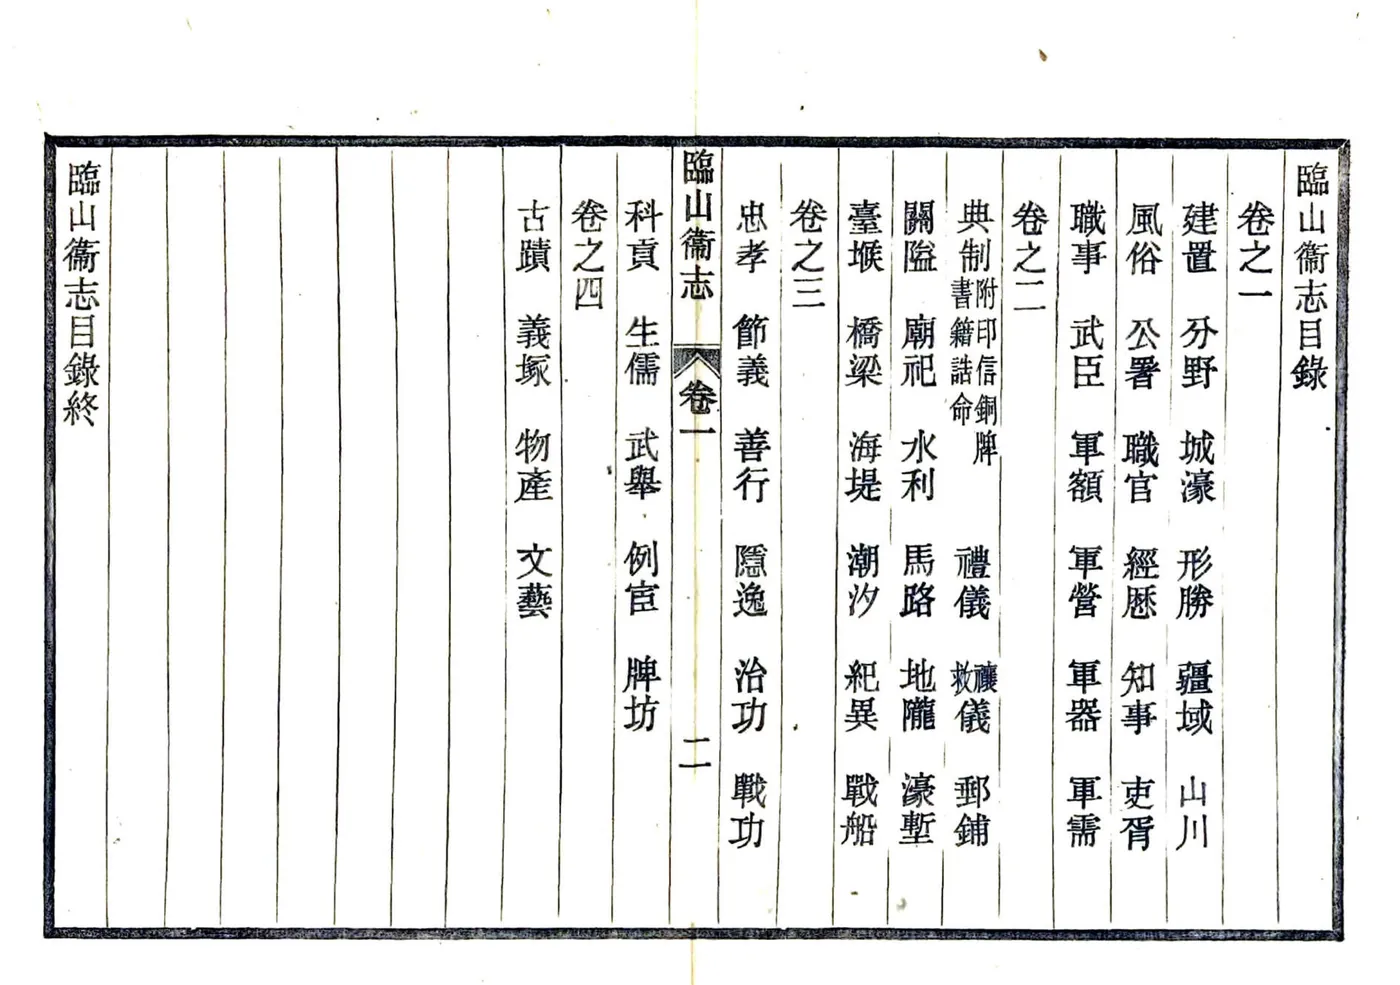 臨山衞志目錄
卷之一
建置 分野 城濠 形勝 疆域 山川
風俗 公署 職官 經歷 知事 吏胥
職事 武臣 軍額 軍營 軍器 軍需
卷之二
典制 附印信銅牌書籍誥命 禮儀 禳救儀 郵鋪
關隘 廟祀 水利 馬路 地隴 濠塹
臺堠 橋梁 海堤 潮汐 紀異 戰船
卷之三
忠孝 節義 善行 隱逸 治功 戰功
臨山衞志 卷一 二
科貢 生儒 武舉 例宦 牌坊
卷之四
古蹟 義塚 物產 文藝
臨山衞志目錄終